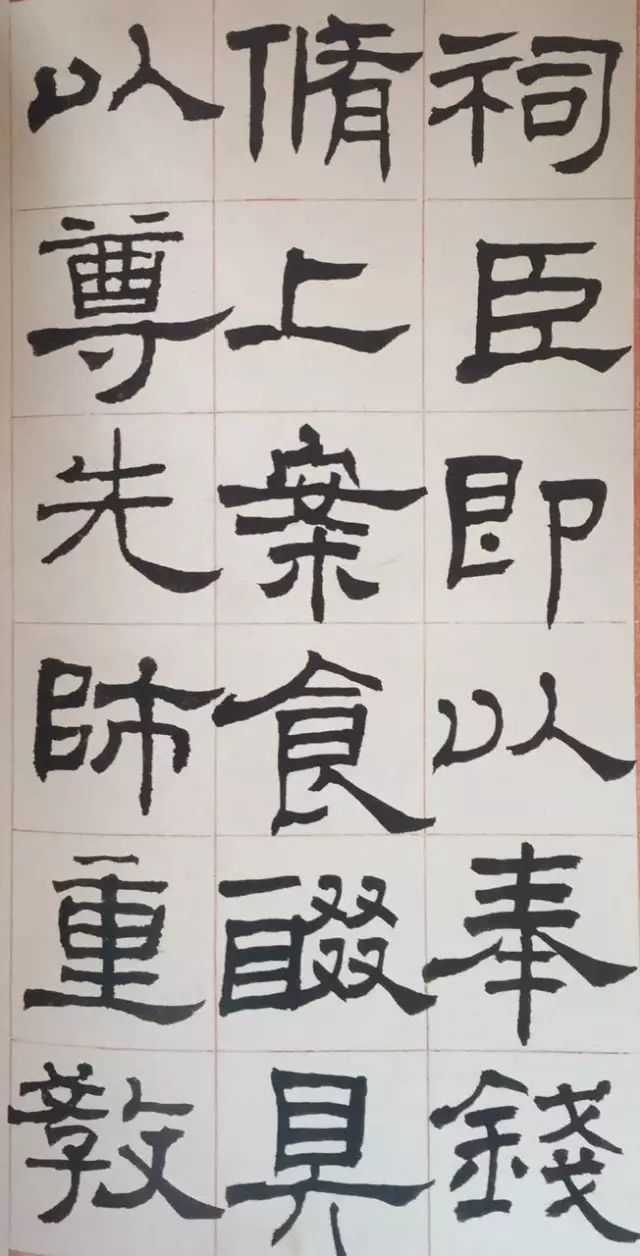 祠臣即以奉錢
脩上案食醊具
以尊先師重教